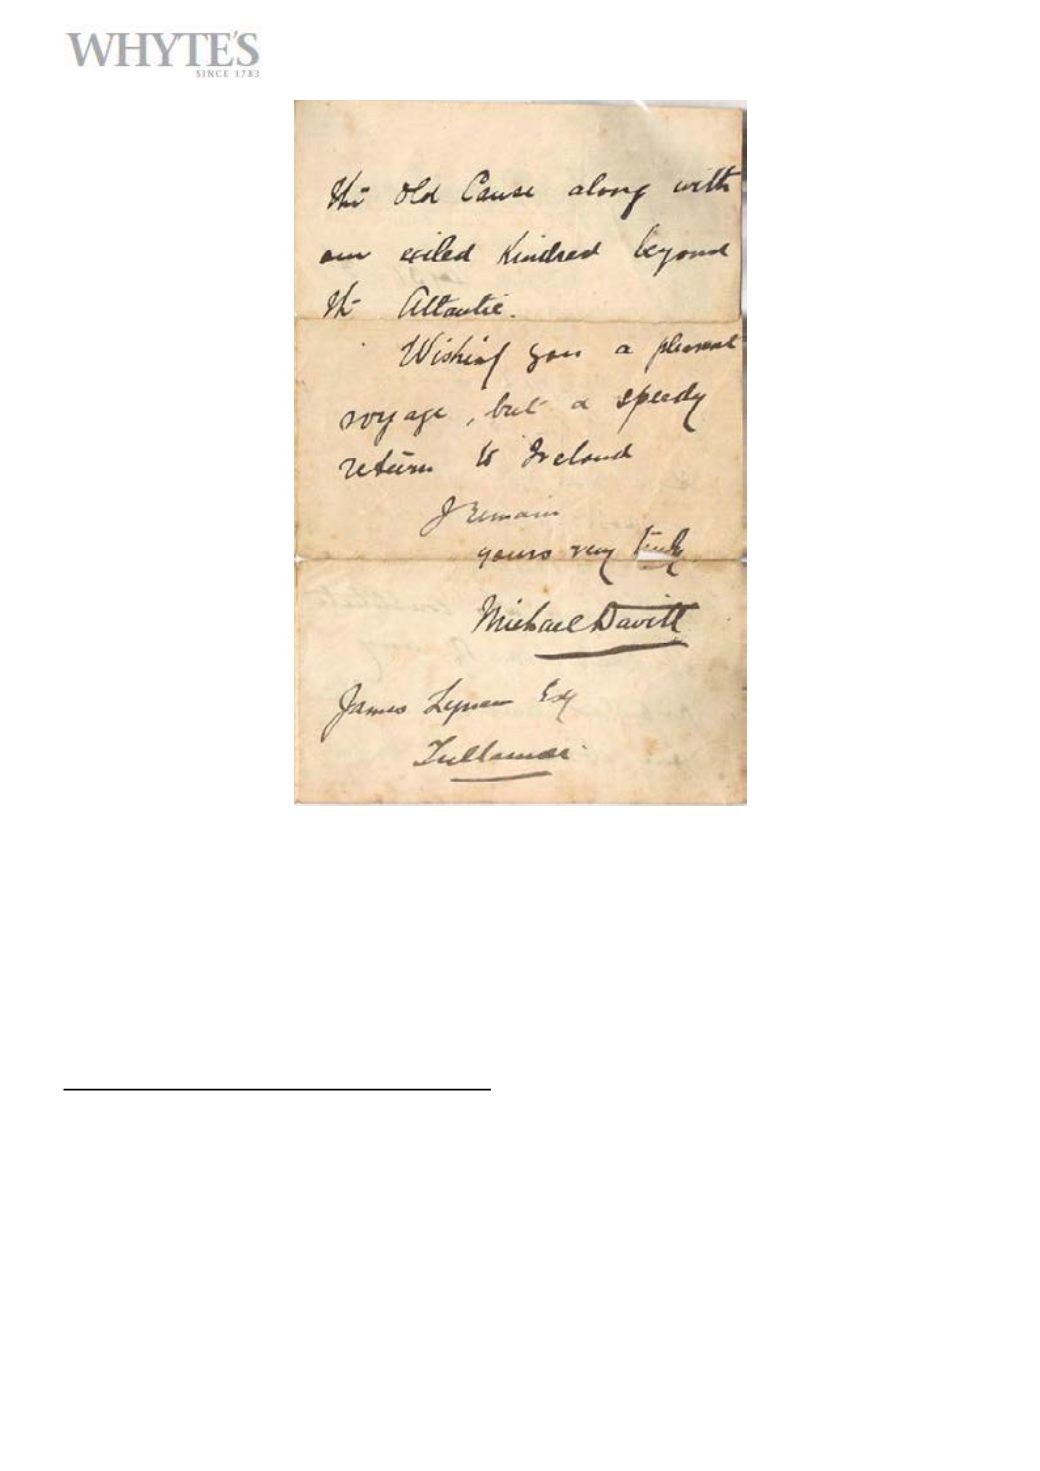 WHYTE'S
SINCE 1783
the old Cause along with
our exiled Kindred beyond
the Atlantic.
Wishing you a pleasant
voyage, but a speedy
return to Ireland
I remain
yours very truly
Michael Davitt
James Lynam Esq
Tullamore